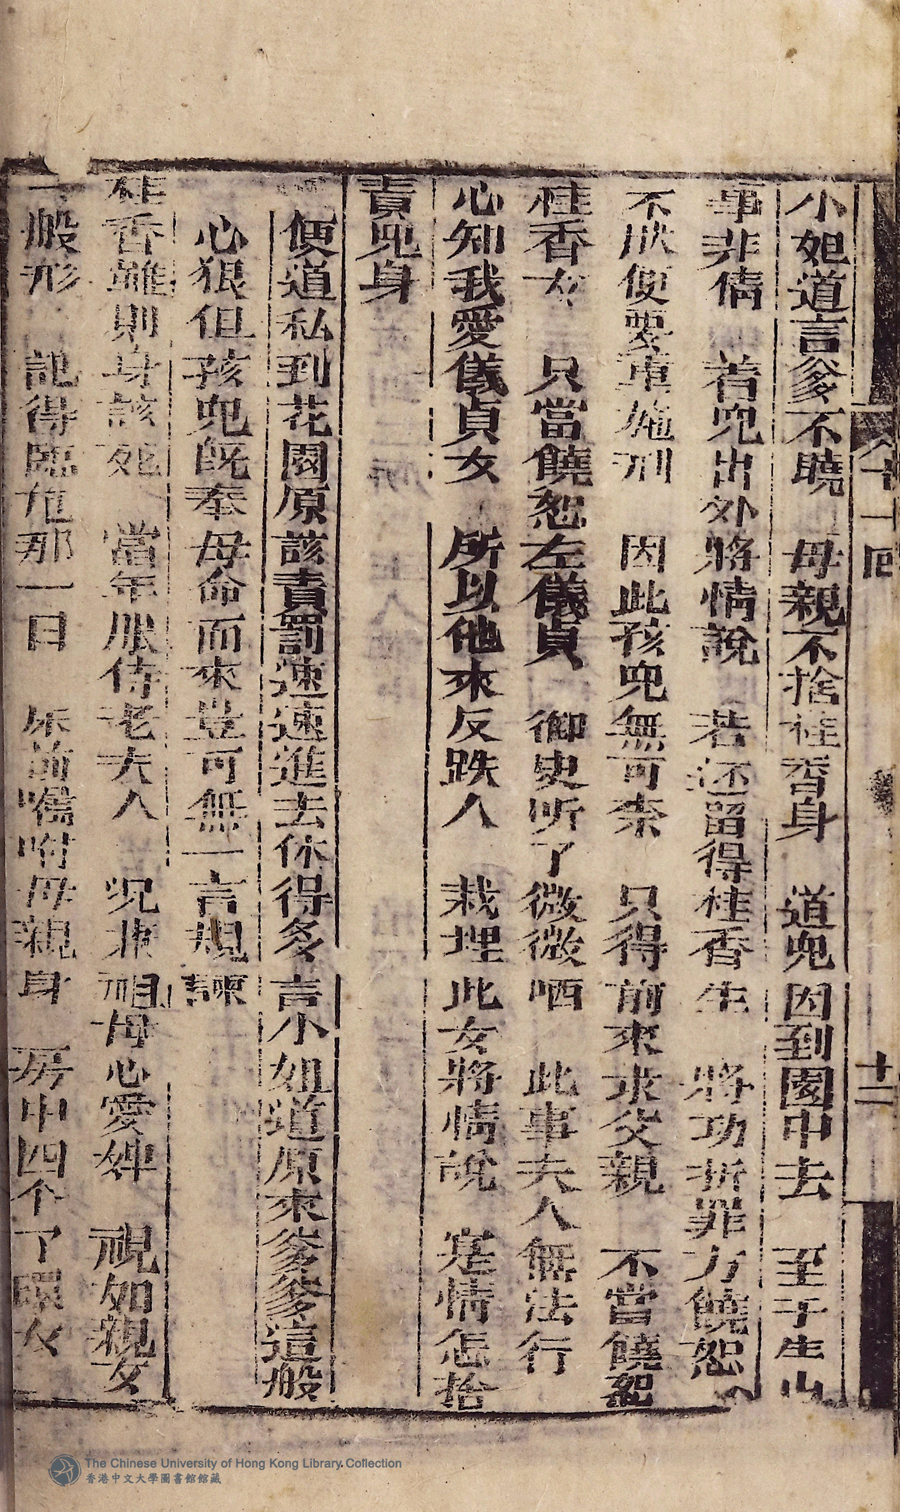 小姐道言爹不曉 母親不捨桂香身 道兜因到園中去 至于生山
事非倩 若兜出外將情說 若还留得桂香生 將功折罪方饒恕
不欣便要重施刑 因此孩兜無可奈 只得前來求父親 不當饒恕
桂香女 只當饒恕左儀貞 御史听了微微哂 此事夫人無法行
心知我愛儀貞女 所以他來反跌人 栽埋此女將情說 寔情怎捨
責兜身
便道私到花園原該責罰速速進去休得多言小姐道原來爹爹這般
心狠但孩兜既奉母命而來豈可無一言規諫
桂香雖則身該死 當年服侍老夫人 况兼祖母心愛婢 視如親女
一般形 記得臨危那一日 床前嘱咐母親身 房中四个了環女
十二
The Chinese University of Hong Kong Library Collection
香港中文大學圖書館館藏